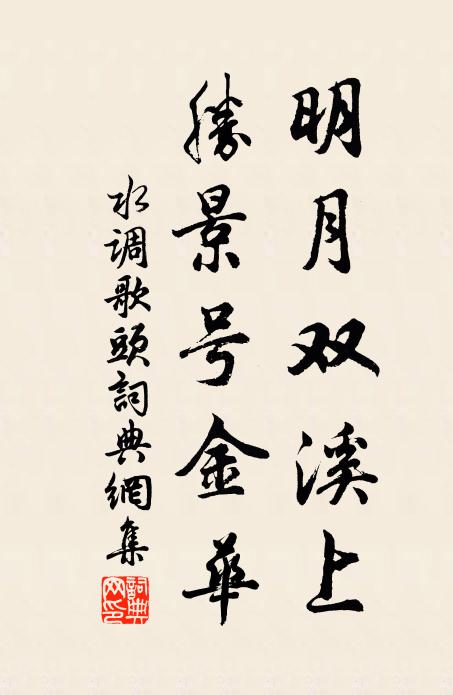 明月双溪上
勝景号金華
水调歌頭詞典網集
詞典网印